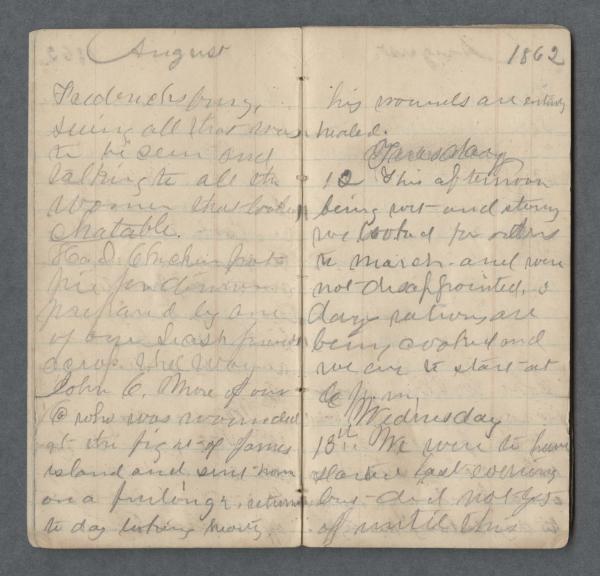 August
Fredericksburg,
seeing all that was
to be seen and
talking to all the
women that looked
chatable.
Had Chicken pot
pie for dinner
prepared by one
of our Secesh friends
across the way
John C. More of our
Co who was wounded
at the fight of James
island and sent home
on a furlough, returned
to day looking hearty,
1862
his wounds are entirely
healed.
Tuesday
12 This afternoon
being wet and stormy
we looked for orders
to march and were
not disappointed. 3
days rations are
being cooked and
we are to start at
6 p.m.
Wednesday
13th We were to have
started last evening
but did not get
off until this